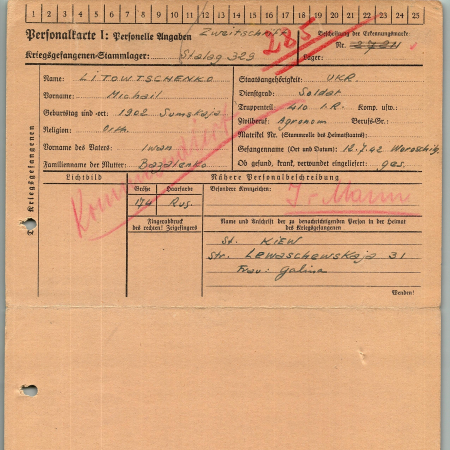 1 2 3 4 5 6 7 8 9 10 11 12 13 14 15 16 17 18 19 20 21 22 23 24 25
Personalkarte I: Personelle Angaben
Zweitschrift
285
Beschriftung der Erkennungsmarke
Kriegsgefangenen-Stammlager: Stalag 329
Nr.
Lager:
Des Kriegsgefangenen
Name: LITOWTSCHENKO
Vorname: Michail
Geburtstag und -ort: 1902 Sumskaja
Religion: Orth.
Vorname des Vaters: Iwan
Familienname der Mutter: Basalenko
Staatsangehörigkeit: UKR.
Dienstgrad: Soldat
Truppenteil: 410 I.R. Komp. usw.:
Zivilberuf: Agronom Berufs-Gr.:
Matrikel Nr. (Stammrolle des Heimatstaates):
Gefangennahme (Ort und Datum): 12.7.42 Woroschig
Ob gesund, krank, verwundet eingeliefert: ges.
Lichtbild
Nähere Personalbeschreibung
Größe
Haarfarbe
Besondere Kennzeichen:
174
Rus.
Fingerabdruck
des rechten! Zeigefingers
Name und Anschrift der zu benachrichtigenden Person in der Heimat
des Kriegsgefangenen
St. KIEW
Str. Lewaschewskaja 31
Frau: Galina
Wenden!